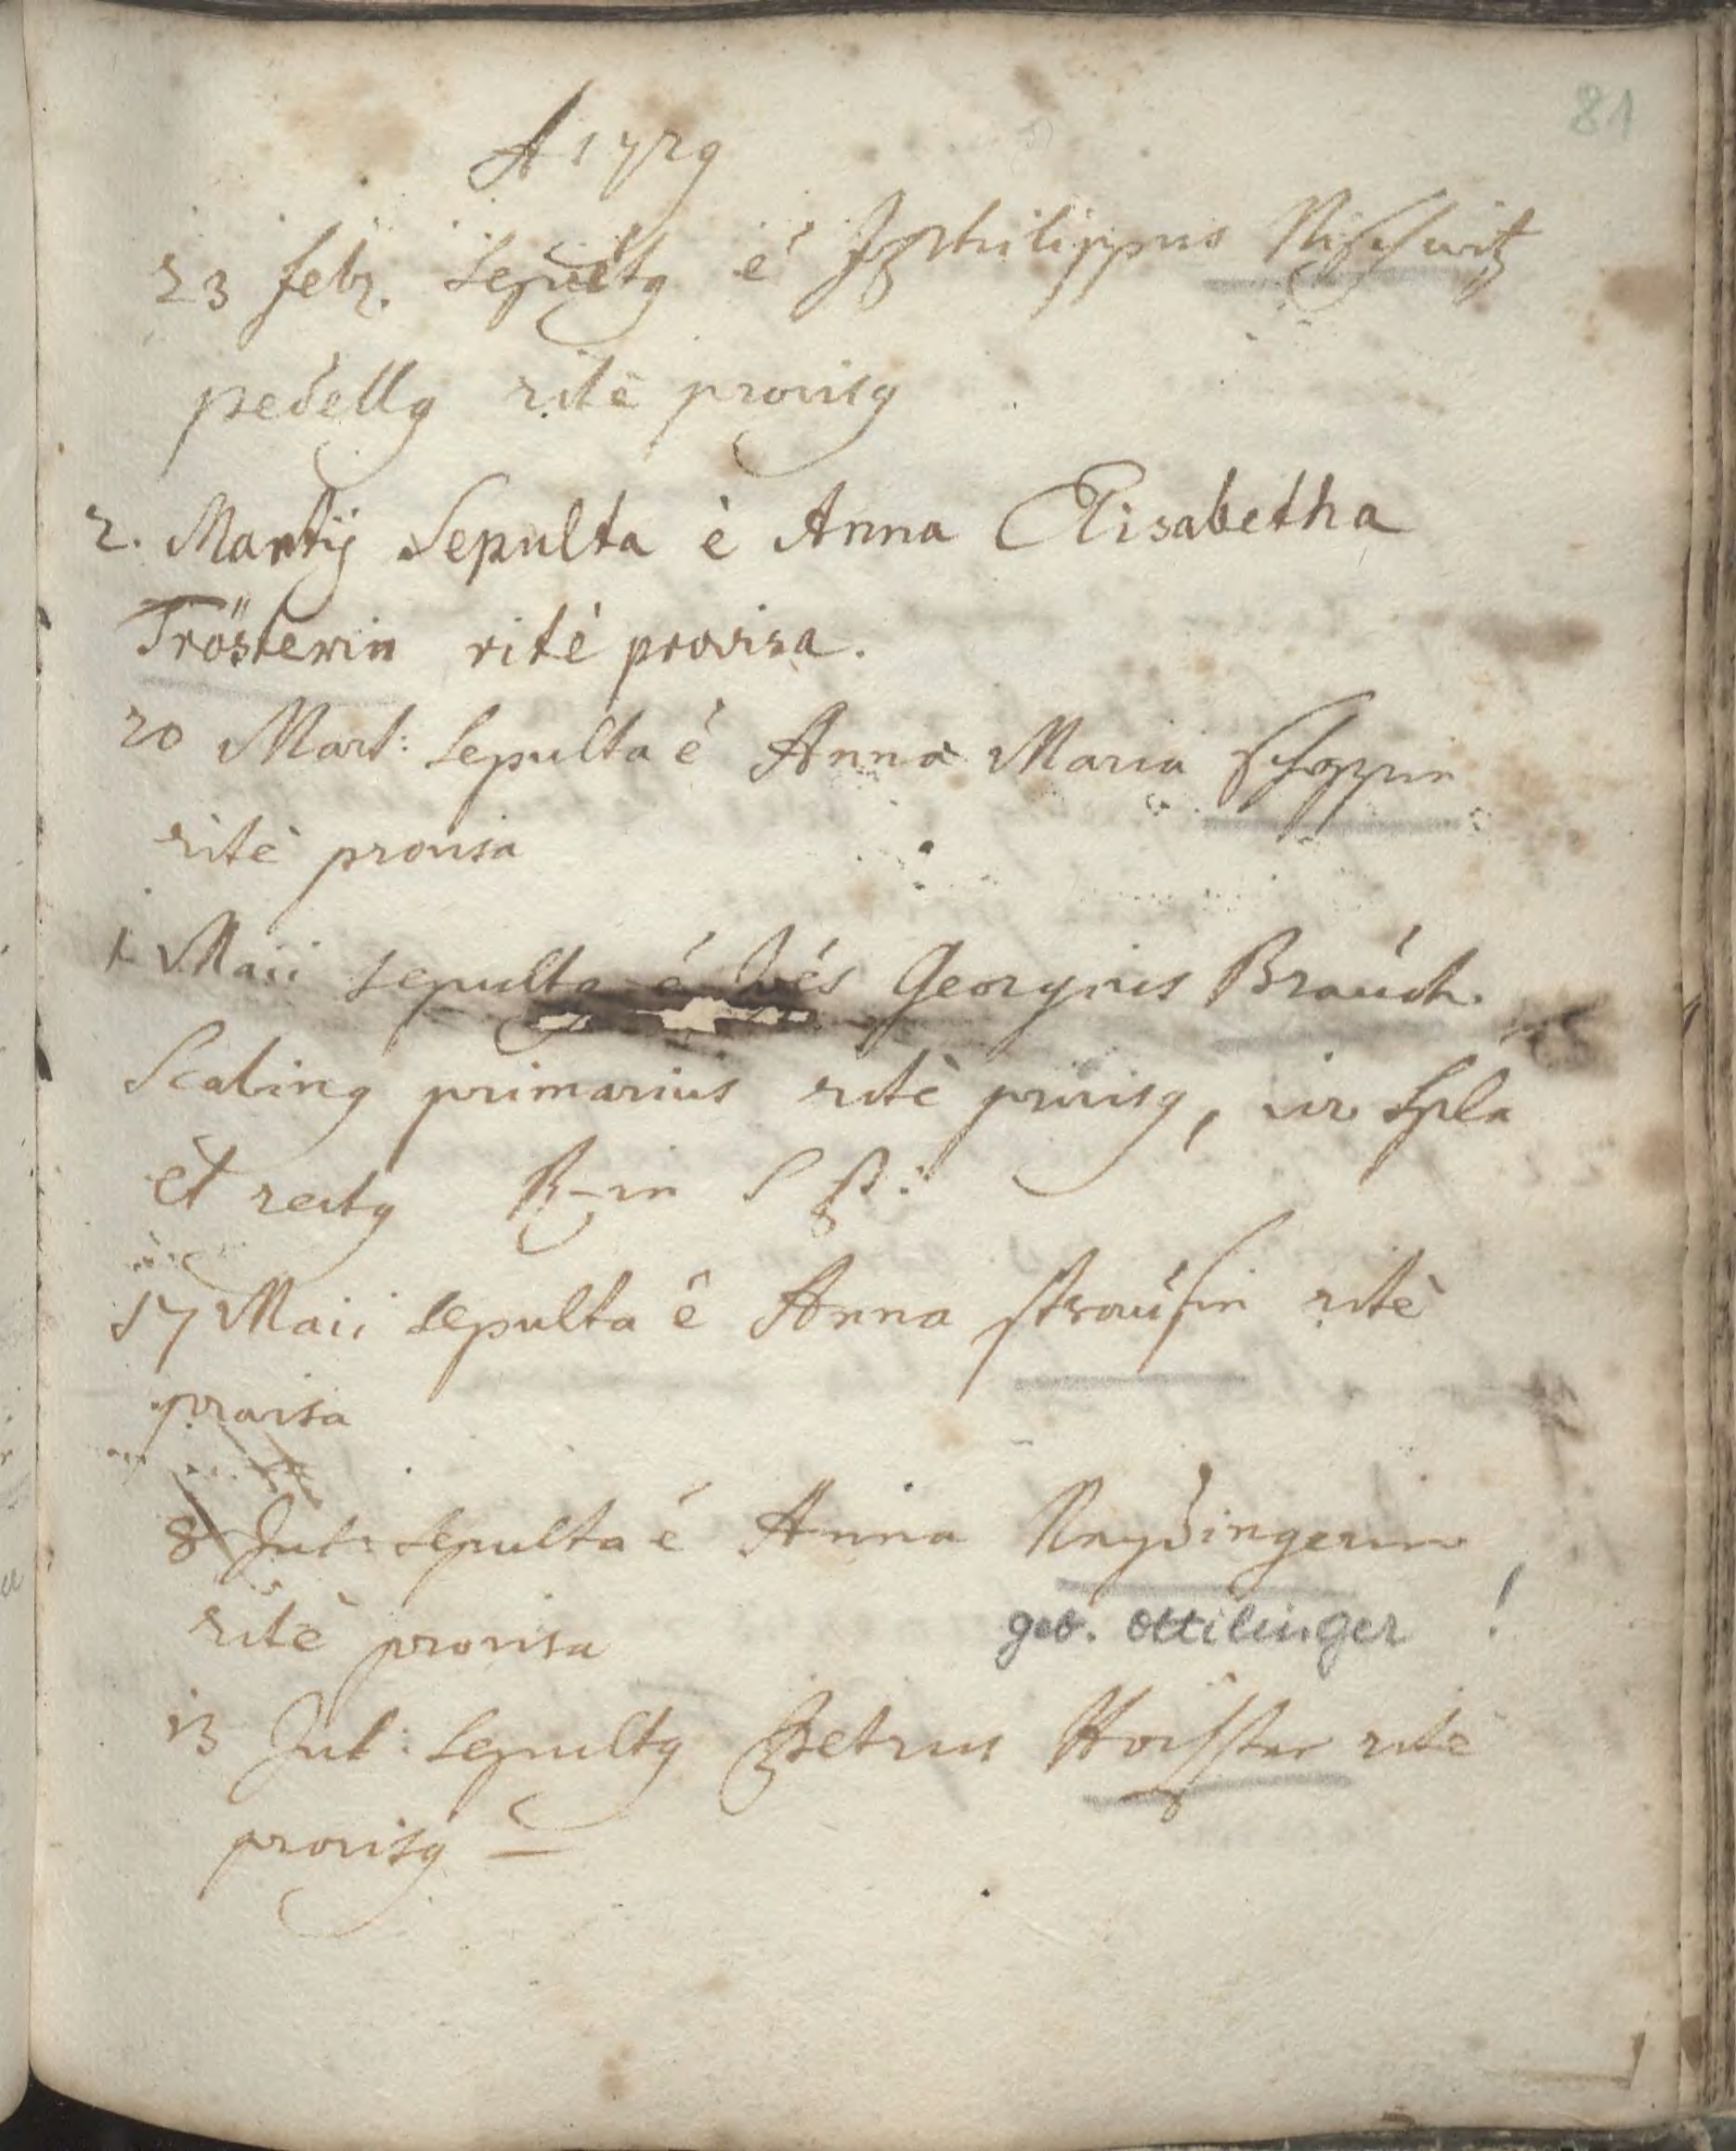 81
A 1729
23 febr. sepultq é Philippus
pedellq ritè provisq
2. Martij Sepulta è Anna Elisabetha
Trösterin ritè provisa.
20 Mart: sepulta é Anna Maria
ritè provisa
1 Maii sepultq é Georgius Braúch
Scabinq primarius ritè provisq, vir
et rectq R in S P:
17 Maii sepulta é Anna straúsin ritè
provisa
8 Jul: sepulta é Anna
ritè provisa geb. Ottilinger !
13 Jul: sepultq Petrus ritè
provisq –